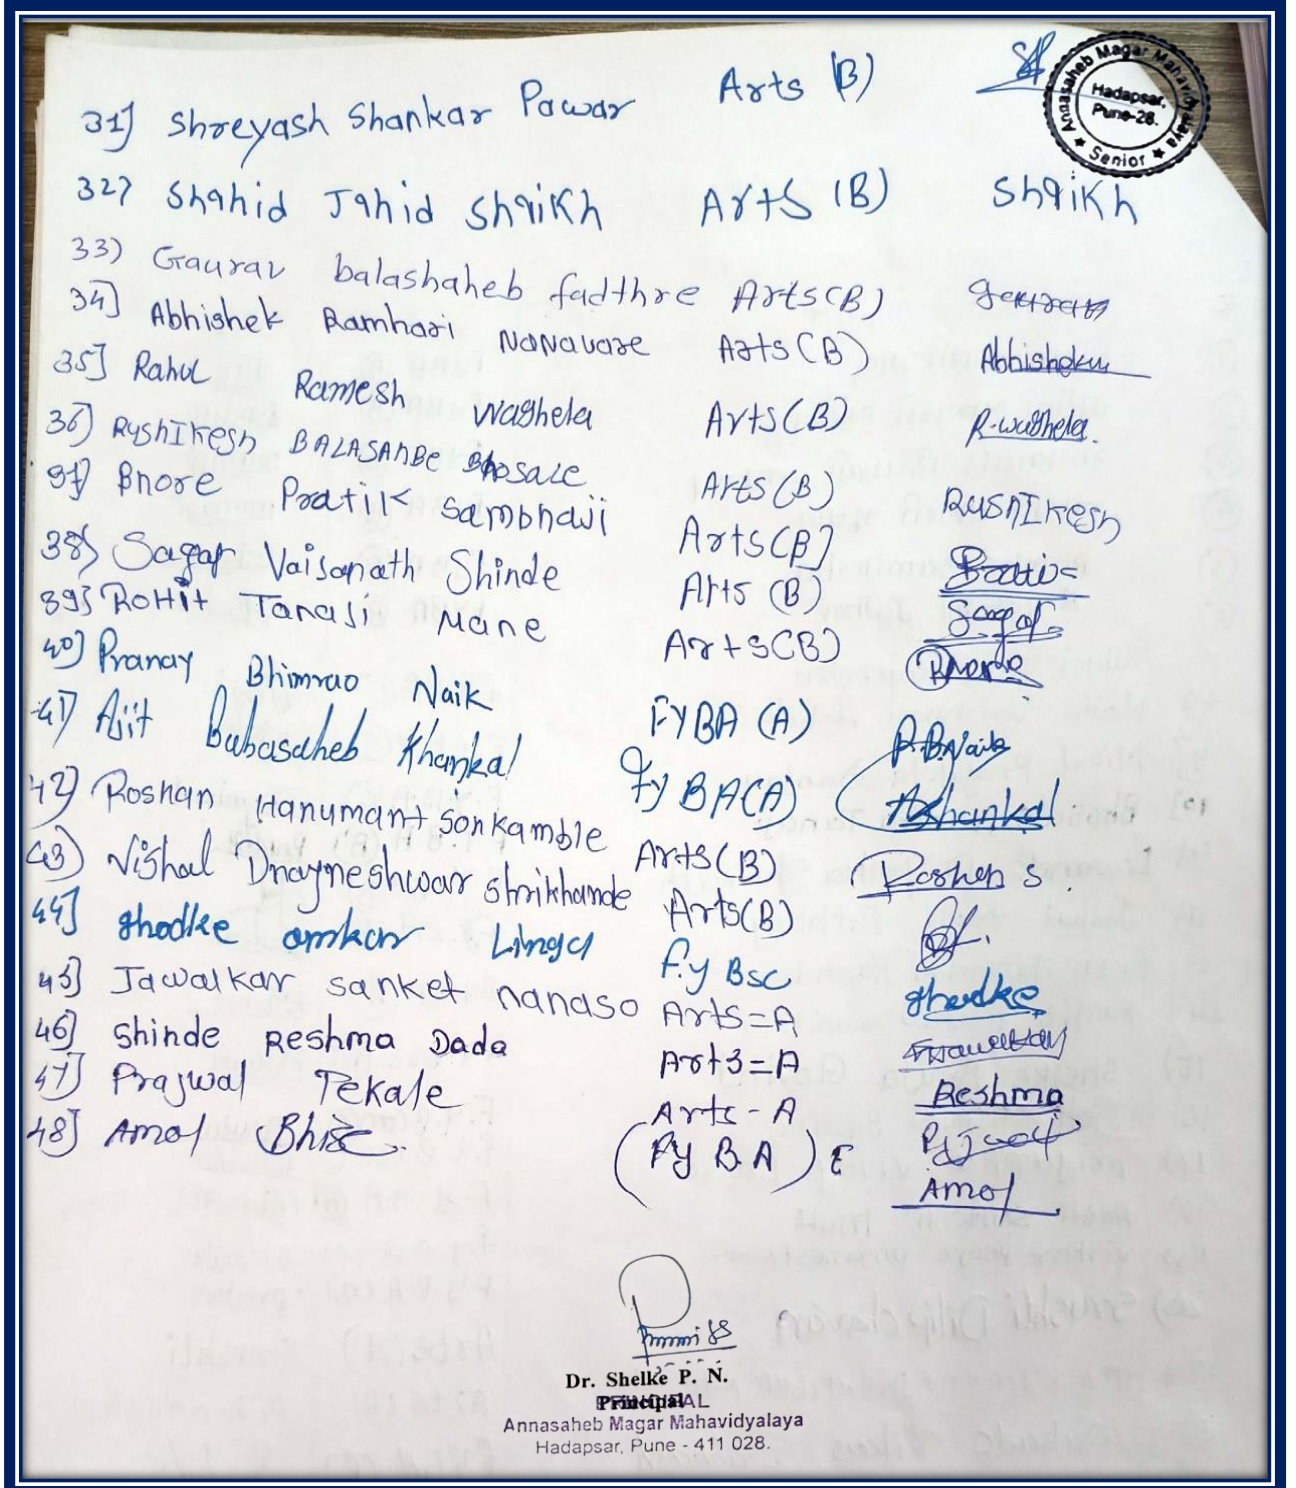 Annasaheb Magar Mahavidyalaya
Hadapsar,
Pune-28.
★ Senior ★
31] Shreyash Shankar Pawar Arts (B)
32) Shahid Jahid Shaikh Arts (B) Shaikh
33) Gaurav balashaheb fadthre Arts(B) Gaurav
34] Abhishek Ramhari Nanavare Arts(B) Abhishek
35] Rahul Ramesh Waghela Arts(B) R.waghela.
36] RUSHIKESH BALASAHBE Bhosale Arts(B) RUSHIKESH
37) Bhore Pratik Sambhaji Arts(B)
38) Sagar Vaijanath Shinde Arts (B) Sagar
39] ROHit Tanaji Mane Arts(B)
40) Pranay Bhimrao Naik FYBA (A) P.B.Naik
41) Ajit Babasaheb Khankal Fy BA(A) AKhankal
42) Roshan Hanumant Sonkamble Arts(B) Roshan S.
43) Vishal Dnayneshwar Shrikhande Arts(B)
44] Ghodke omkar Linga F.y Bsc Ghodke
45] Jawalkar sanket nanaso Arts=A
46] Shinde Reshma Dada Arts=A Reshma
47] Prajwal Tekale Arts-A
48] Amol Bhise. (Fy B.A) Amol
Dr. Shelke P. N.
Principal
PRINCIPAL
Annasaheb Magar Mahavidyalaya
Hadapsar, Pune - 411 028.